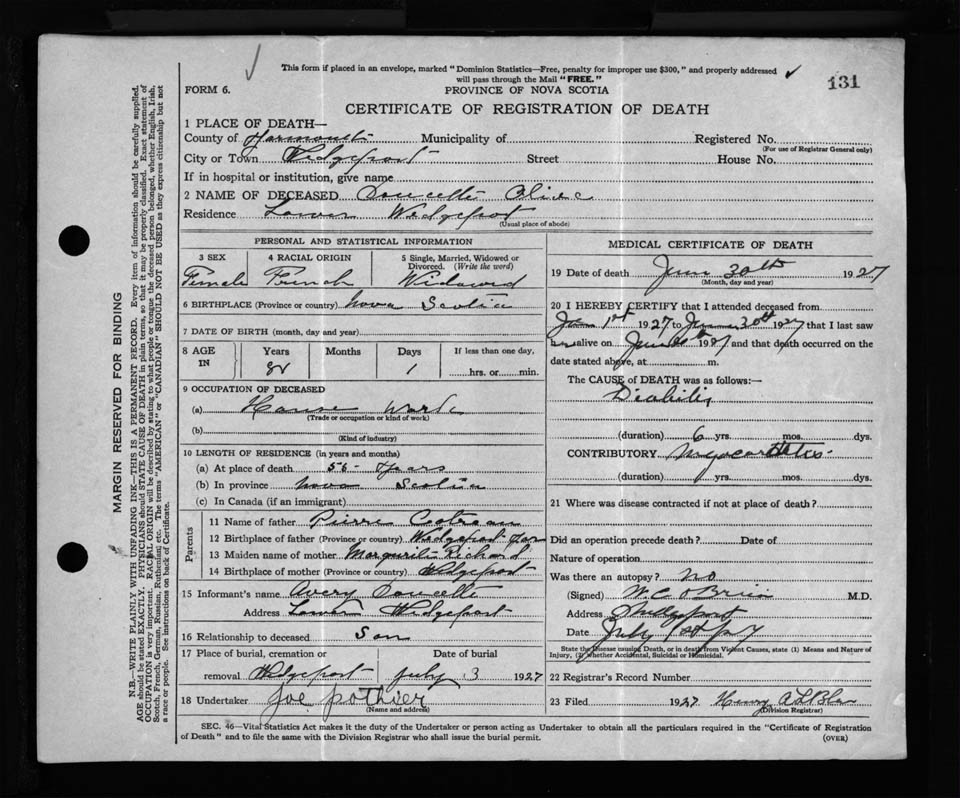 This form if placed in an envelope, marked "Dominion Statistics—Free, penalty for improper use $300," and properly addressed
will pass through the Mail "FREE."
131
FORM 6.
PROVINCE OF NOVA SCOTIA
CERTIFICATE OF REGISTRATION OF DEATH
1 PLACE OF DEATH—
County of Yarmouth Municipality of Registered No.
(For use of Registrar General only)
City or Town Wedgeport Street House No.
If in hospital or institution, give name
2 NAME OF DECEASED Doucette Olive
Residence Lower Wedgeport
(Usual place of abode)
PERSONAL AND STATISTICAL INFORMATION
3 SEX 4 RACIAL ORIGIN 5 Single, Married, Widowed or Divorced. (Write the word)
Female French Widowed
6 BIRTHPLACE (Province or country) Nova Scotia
7 DATE OF BIRTH (month, day and year)
8 AGE IN Years Months Days If less than one day,
1 hrs. or min.
9 OCCUPATION OF DECEASED
(a) House Work
(Trade or occupation or kind of work)
(b)
(Kind of industry)
10 LENGTH OF RESIDENCE (in years and months)
(a) At place of death 56 Years
(b) In province Nova Scotia
(c) In Canada (if an immigrant)
Parents
11 Name of father Pierre
12 Birthplace of father (Province or country) Wedgeport
13 Maiden name of mother Marguerite Richard
14 Birthplace of mother (Province or country) Wedgeport
15 Informant's name Avery Doucette
Address Lower Wedgeport
16 Relationship to deceased Son
17 Place of burial, cremation or Date of burial
removal Wedgeport July 3 1927
18 Undertaker Joe pothier
(Name and address)
MEDICAL CERTIFICATE OF DEATH
19 Date of death June 30th 1927
(Month, day and year)
20 I HEREBY CERTIFY that I attended deceased from
1st 1927 to June 30th 1927 that I last saw
her alive on June 1927 and that death occurred on the
date stated above, at m.
The CAUSE of DEATH was as follows:—
Diabitis
(duration) 6 yrs. mos. dys.
CONTRIBUTORY
(duration) yrs. mos. dys.
21 Where was disease contracted if not at place of death?
Did an operation precede death? Date of
Nature of operation
Was there an autopsy? no
(Signed) W.C. O'Brien M.D.
Address
Date July 1st 27
State the Disease causing Death, or in death from Violent Causes, state (1) Means and Nature of
Injury, (2) Whether Accidental, Suicidal or Homicidal.
22 Registrar's Record Number
23 Filed 1927 Henry
(Division Registrar)
SEC. 46—Vital Statistics Act makes it the duty of the Undertaker or person acting as Undertaker to obtain all the particulars required in the "Certificate of Registration
of Death" and to file the same with the Division Registrar who shall issue the burial permit.
(OVER)
MARGIN RESERVED FOR BINDING
N.B.—WRITE PLAINLY WITH UNFADING INK—THIS IS A PERMANENT RECORD. Every item of information should be carefully supplied.
AGE should be stated EXACTLY. PHYSICIANS should STATE CAUSE OF DEATH in plain terms, so that it may be properly classified. Exact statement of
OCCUPATION is very important. RACIAL ORIGIN will be described by stating to what people or tongue the deceased person belonged, whether English, Irish,
Scotch, French, German, Russian, Ruthenian, etc. The terms "AMERICAN" or "CANADIAN" SHOULD NOT BE USED as they express citizenship but not
a race or people. See instructions on back of Certificate.